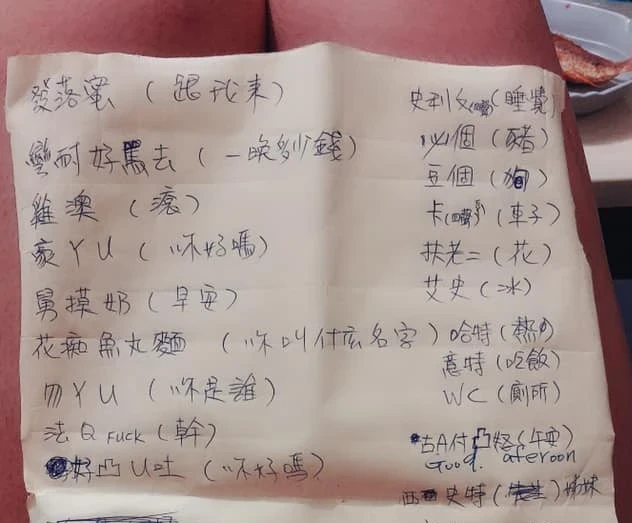 發落蜜 (跟我來)
彎耐好罵去 (一晚多少錢)
雞澳 (滾)
豪ㄚU (你好嗎)
舅摸奶 (早安)
花痴魚丸麵 (你叫什庅名字)
勿ㄚU (你是誰)
法Q FUCK (幹)
好凸U吐 (你好嗎)
史利ㄆ(四聲)(睡覺)
必個 (豬)
豆個 (狗)
卡(四聲) (車子)
扶老二 (花)
艾史 (冰)
哈特 (熱)
意特 (吃飯)
WC (廁所)
古A付凸怒 (午安)
Good. afteroon
西史特 姊妹